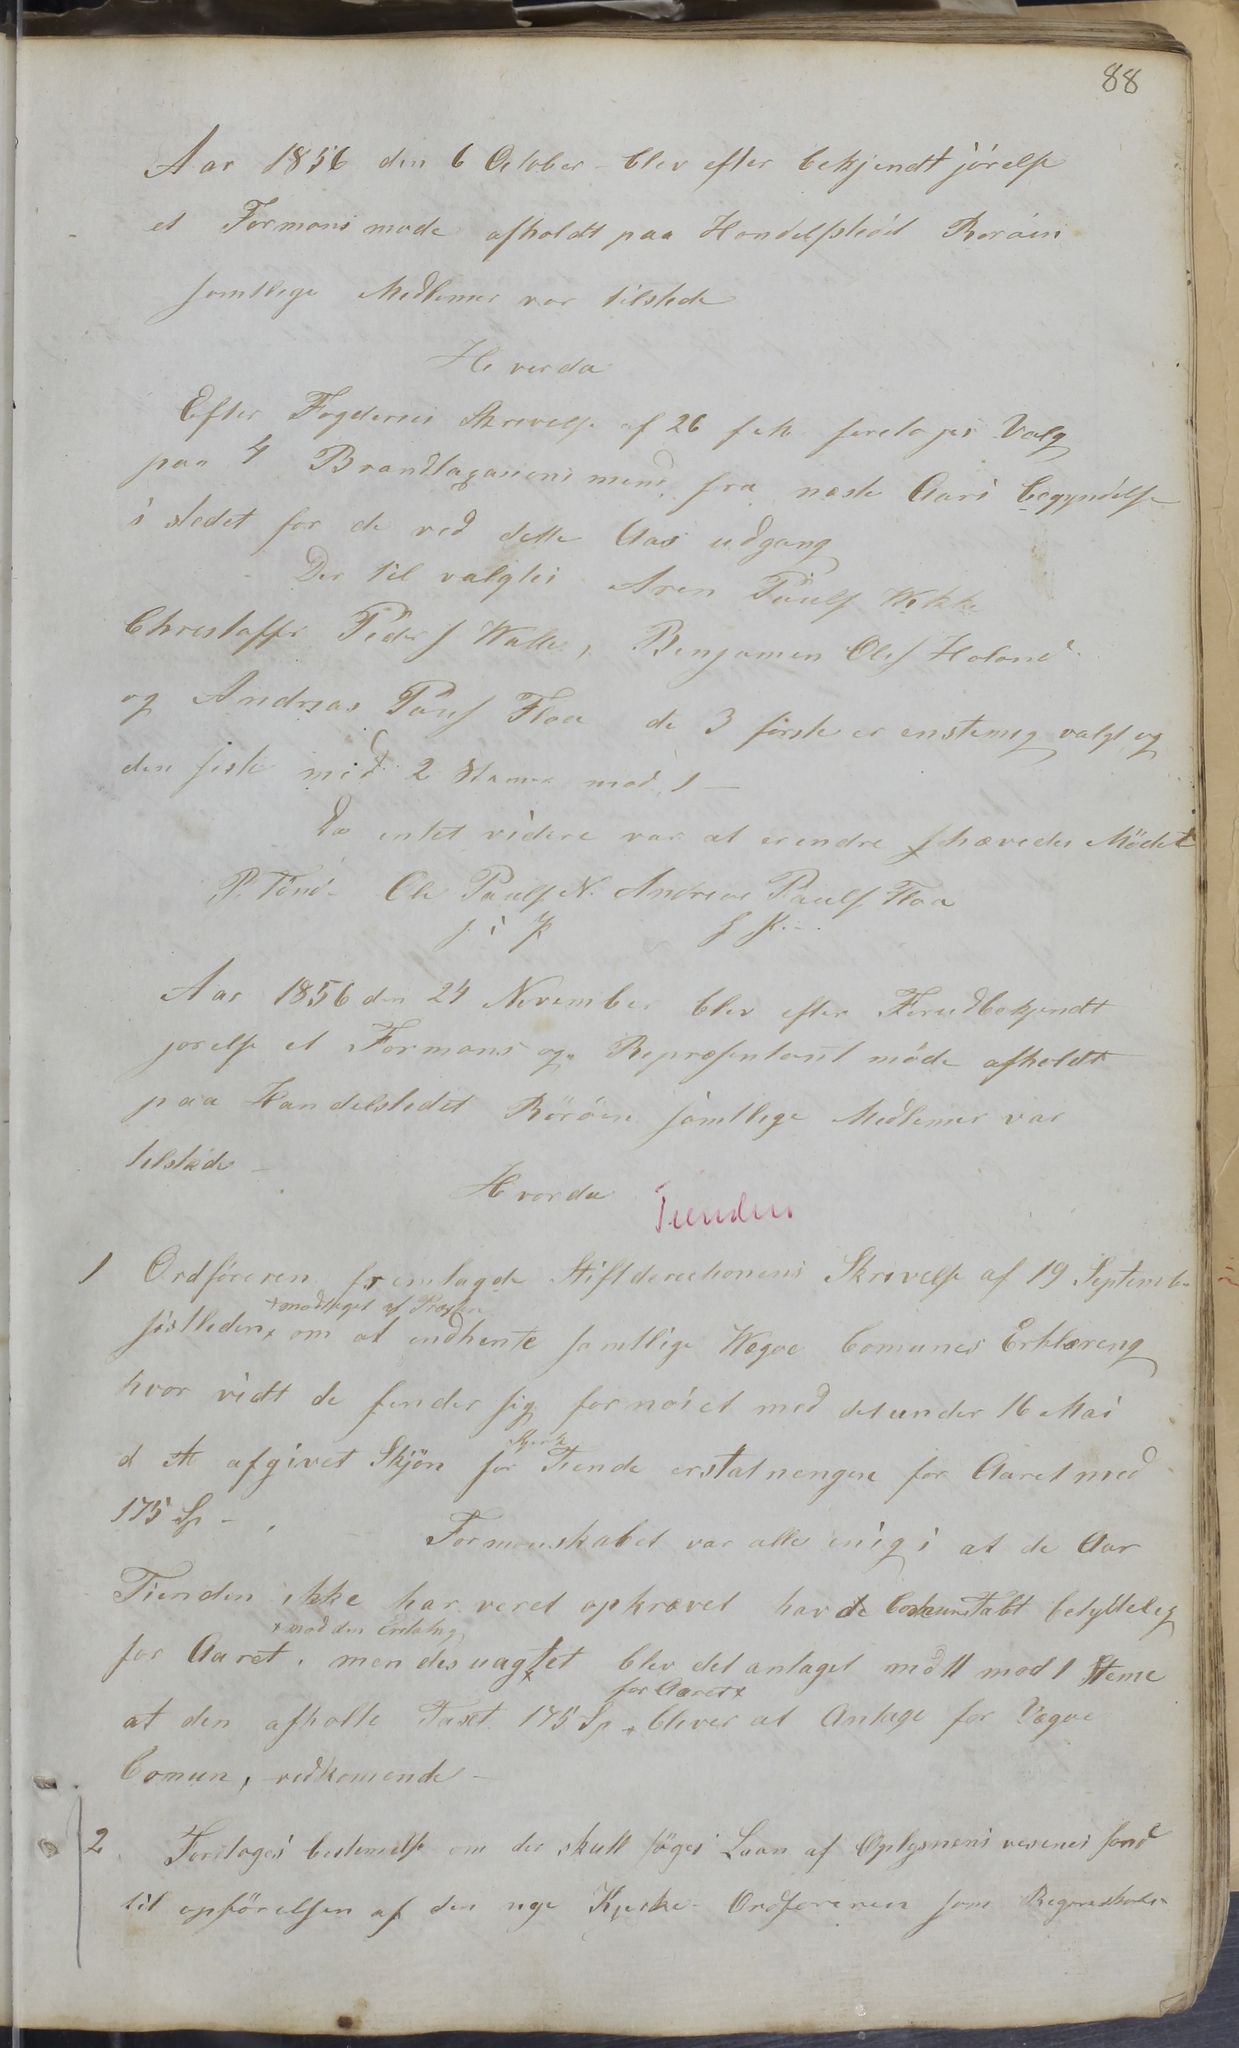 88
Aar 1856 den 6 October blev efter bekjendtjörelse
et Formons möde afholdt paa Handelsstedet Rørøen
samtlige Medlemer var tilstede
Hvorda
Efter Fogderies Skrivelse af 26 f.m. foretoges Valg
paa 4 Brandtagasions mend fra neste Aars begyndelse
i stedet for de ved dette Aas udgang
Der til valgtes Aren Paulss
Christoffer Peders Walla, Benjamin Oless Holand
og Andreas Pauls Floa de 3 förste er enstemig valgt og
den siste med 2 Stemer mod 1 —
Da intet videre var at erendre hævedes Mödet
P. Tönd. Ole Paulss N. Andreas Paulss Floa
Aar 1856 den 24 November blev efter Forudbekjendt
jörelse et Formons og Representant möde afholdt
paa Handelstedet Rörøen samtlige Medlemer var
tilstede —
Hvorda Tienden
1 Ordföreren fremlagde Stiftderectionens Skrivelse af 19 Septemb
× modtaget af Præsten
sistleden × om at indhente samtlige Wegøe Comunes Erklæring
hvor vidt de finder sig fornöiet med det under 16 Mai
Kirke
d A afgivet Skjön for Tiende erstatningen for Aaret med
175 Sp —
Formonskabet var alle enig i at de Aar
Tienden ikke har veret opkrævet havde været betyttelig
× mod den Erstatnig
for Aaret, men des uagtet × blev det antaget med 11 mod 1 Steme
for Aaret ×
at den afholte Taxt 175 Sp × bliver at Antage for Vegøe
Comun, vedkomende —
2 Foretoges bestemelse om der skull söges Laan af Oplysnens vesenes fond
til opförelsen af den nye Kyrke. Ordföreren som Regnedskabs